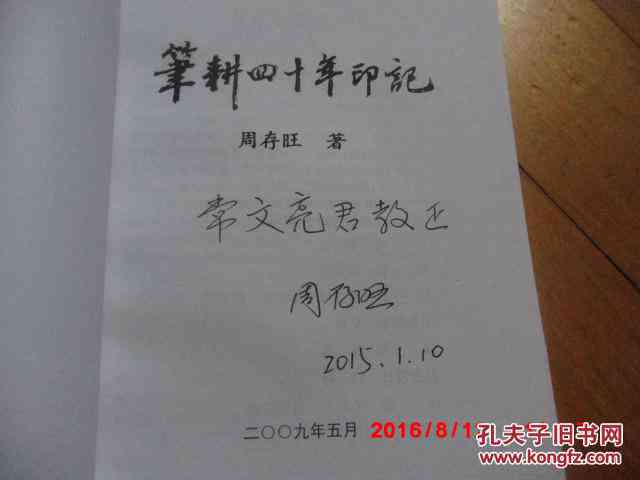 筆耕四十年印記
周存旺 著
常文亮君教正
周存旺
2015.1.10
二〇〇九年五月
2016/8/1
孔夫子旧书网
www.kongfz.com